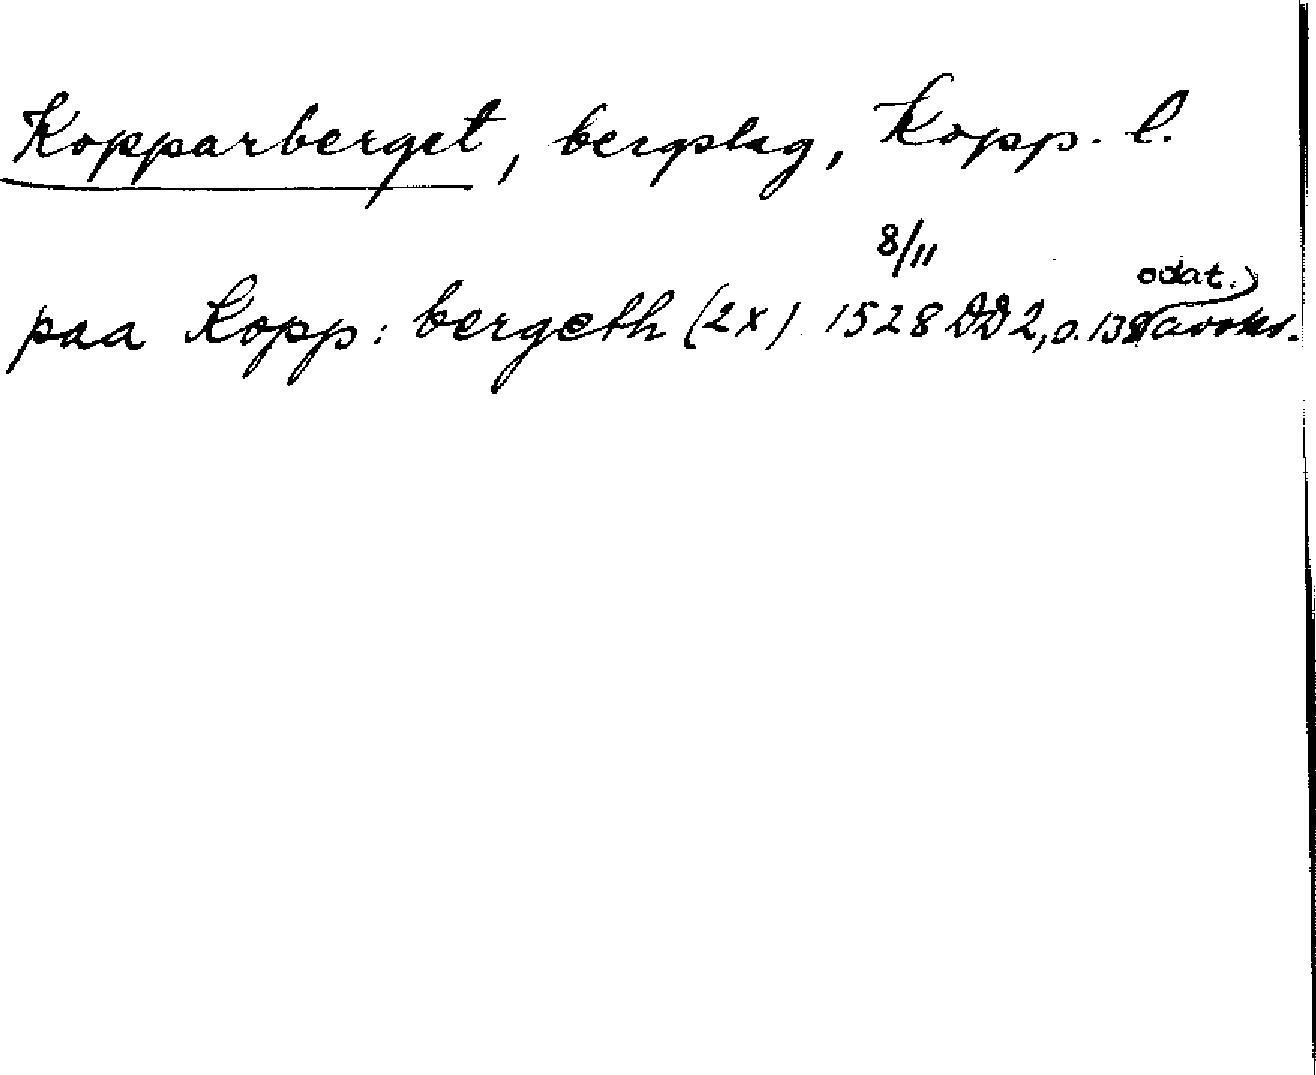 Kopparberget, bergslag, Kopp. l.
8/11
paa Kopp: bergeth (2x) 1528 DD 2, s. 138 odat. avskr.